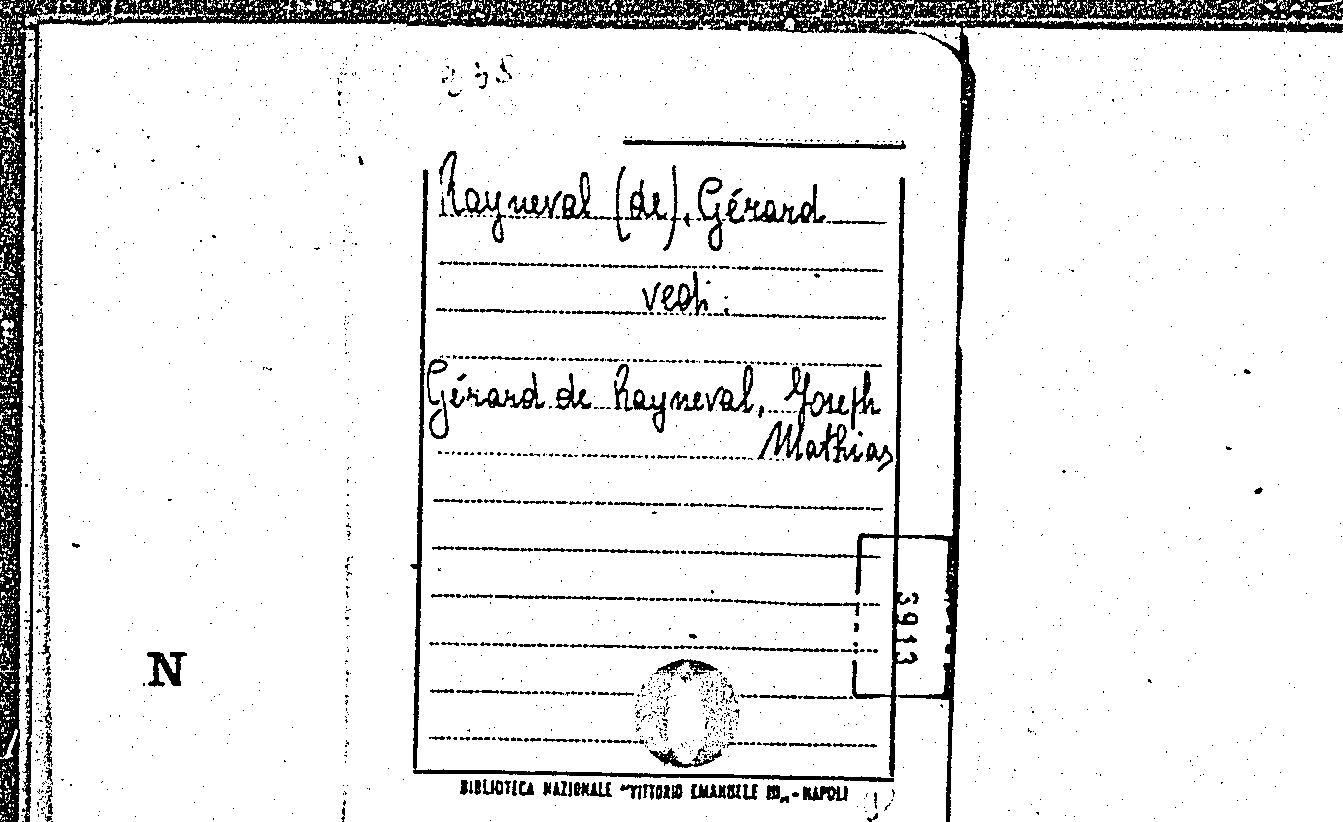 Rayneval (de), Gérard
vedi:
Gérard de Rayneval, Joseph
Mathias
3913
N
BIBLIOTECA NAZIONALE "VITTORIO EMANUELE III" - NAPOLI